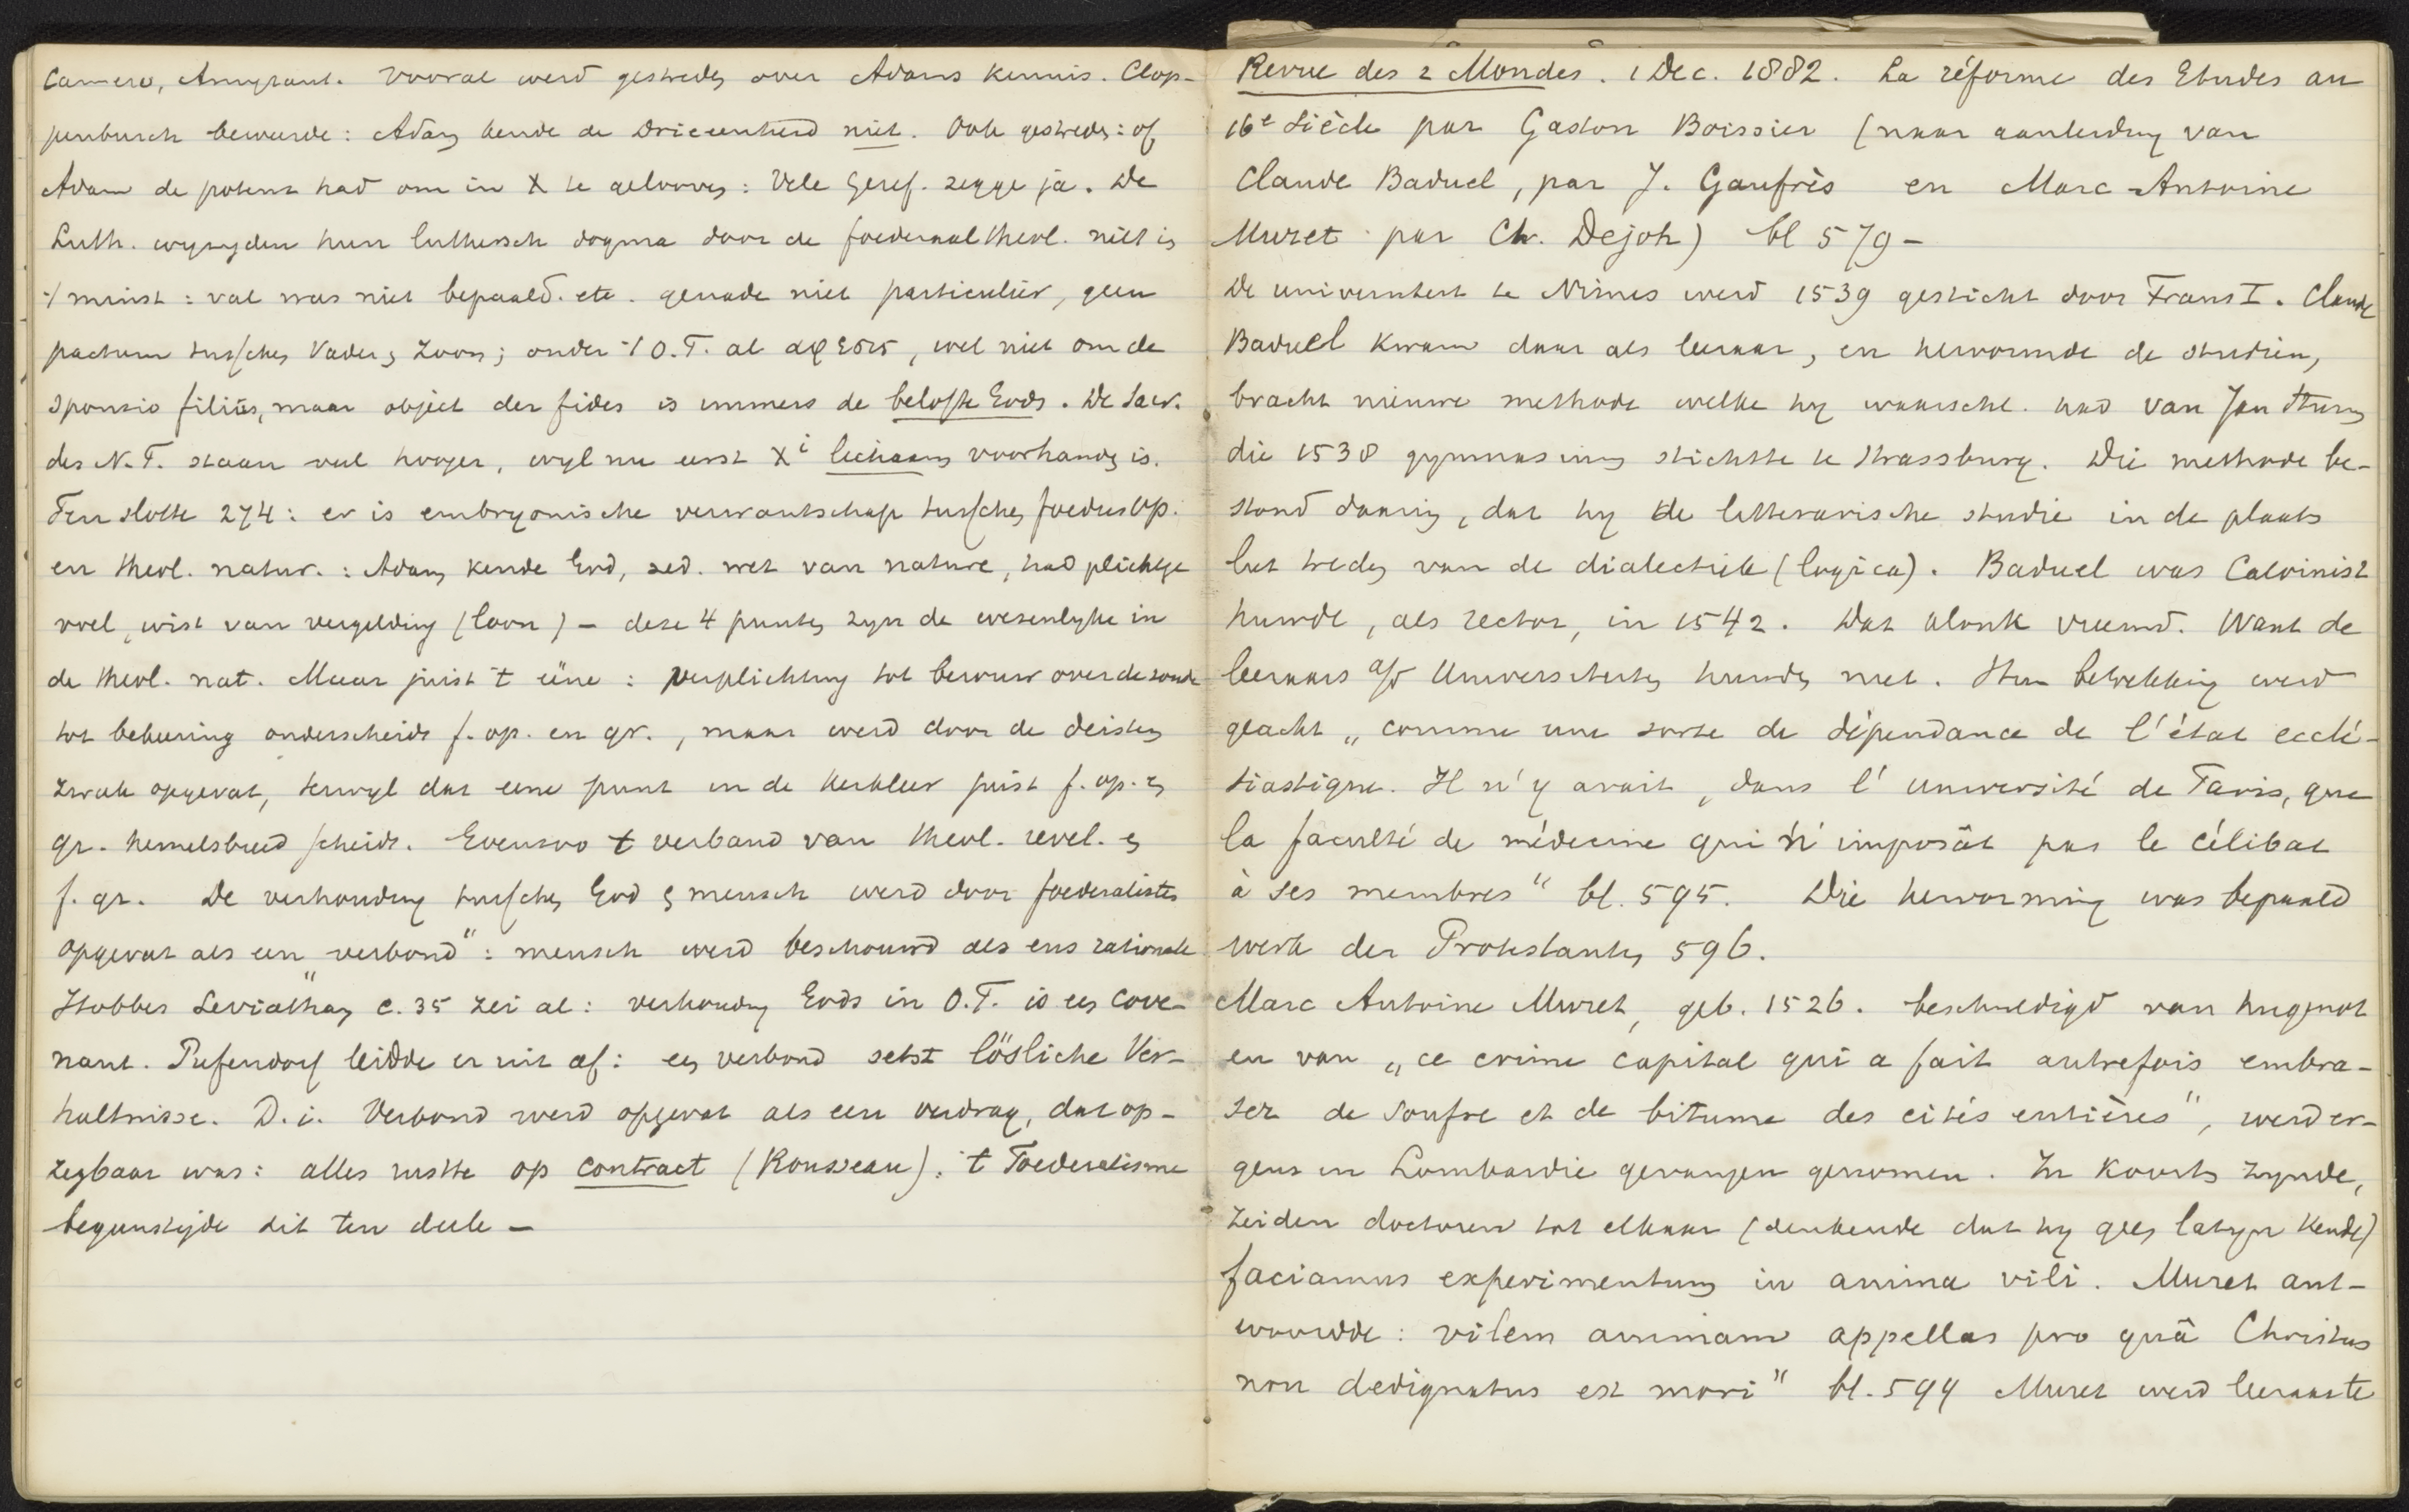 Camero, Amyraut. Vooral werd gestreden over Adams kennis. Clop-
penburch beweerde: Adam kende de Drieeenheid niet. Ook gestreden: of
Adam de potent had om in X te gelooven: Vele Geref. zegge ja. De
Luth. wyzigden hun luthersch dogma door de foederaaltheol. niet in
't minst: val was niet bepaald. etc. genade niet particulier, geen
pactum tusschen Vader en Zoon; onder 't O.T. al ἄφεσις, wel niet om de
sponsio filius, maar object der fides is immers de belofte Gods. De Sacr.
des N.T. staan veel hooger, wyl nu eerst Xi lichaam voorhanden is.
Ten slotte 274: er is embryonische verwantschap tusschen foedus op.
en theol. natur.: Adam kende God, zed. wet van nature, had plichtge
voel, wist van vergelding (loon) – deze 4 punten zyn de wezenlyke in
de theol. nat. Maar juist 't ééne: verplichting tot berouw over de zonde
tot bekeering onderscheidt f. op. en gr., maar werd door de deisten
zwak opgevat, terwyl dat eene punt in de kerkleer juist f. op. en
gr. hemelsbreed scheidt. Evenzoo 't verband van theol. revel. en
f. gr. De verhouding tusschen God en mensch werd door foederalisten
opgevat als een „verbond": mensch werd beschouwd als ens rationale
Hobbes Leviathan c. 35 zei al: verhouding Gods in O.T. is een cove-
nant. Pufendorf leidde er uit af: een verbond setzt lösliche Ver-
haltnisse. D.i. Verbond werd opgevat als een verdrag, dat op-
zegbaar was: alles rustte op contract (Rousseau). 't Foederalisme
begunstigde dit ten deele –
Revue des 2 Mondes. 1 Dec. 1882. La réforme des Etudes au
16e siècle par Gaston Boissier (naar aanleiding van
Claude Baduel, par J. Gaufrès en Marc-Antoine
Muret par Ch. Dejob) bl 579 –
De universiteit te Nimes werd 1539 gesticht door Frans I. Claude
Baduel kwam daar als leeraar, en hervormde de studien,
bracht nieuwe methode welke hy waarschl. had van Jan Sturm
die 1538 gymnasium stichtte te Strassburg. Die methode be-
stond daarin, dat hy de letterarische studie in de plaats
liet treden van de dialectiek (logica). Baduel was Calvinist
huwde, als rector, in 1542. Dat klonk vreemd. Want de
leeraars a/d Universiteiten huwden niet. Hun betrekking werd
geacht „comme une sorte de dépendance de l'état ecclé-
siastique. Il n'y avait, dans l'université de Paris, que
la faculté de médecine qui n'imposât pas le célibat
à ses membres" bl. 595. Die hervorming was bepaald
werk der Protestanten 596.
Marc Antoine Muret, geb. 1526. beschuldigd van hugenot
en van „ce crime capital qui a fait autrefois embra-
ser de soufre et de bitume des cités entières", werd er-
gens in Lombardie gevangen genomen. In koorts zynde,
zeiden doctoren tot elkaar (denkende dat hy geen latyn kende)
faciamus experimentum in anima vili. Muret ant-
woordde: vilem animam appellas pro quâ Christus
non dedignatus est mori" bl. 594 Muret werd leeraar te